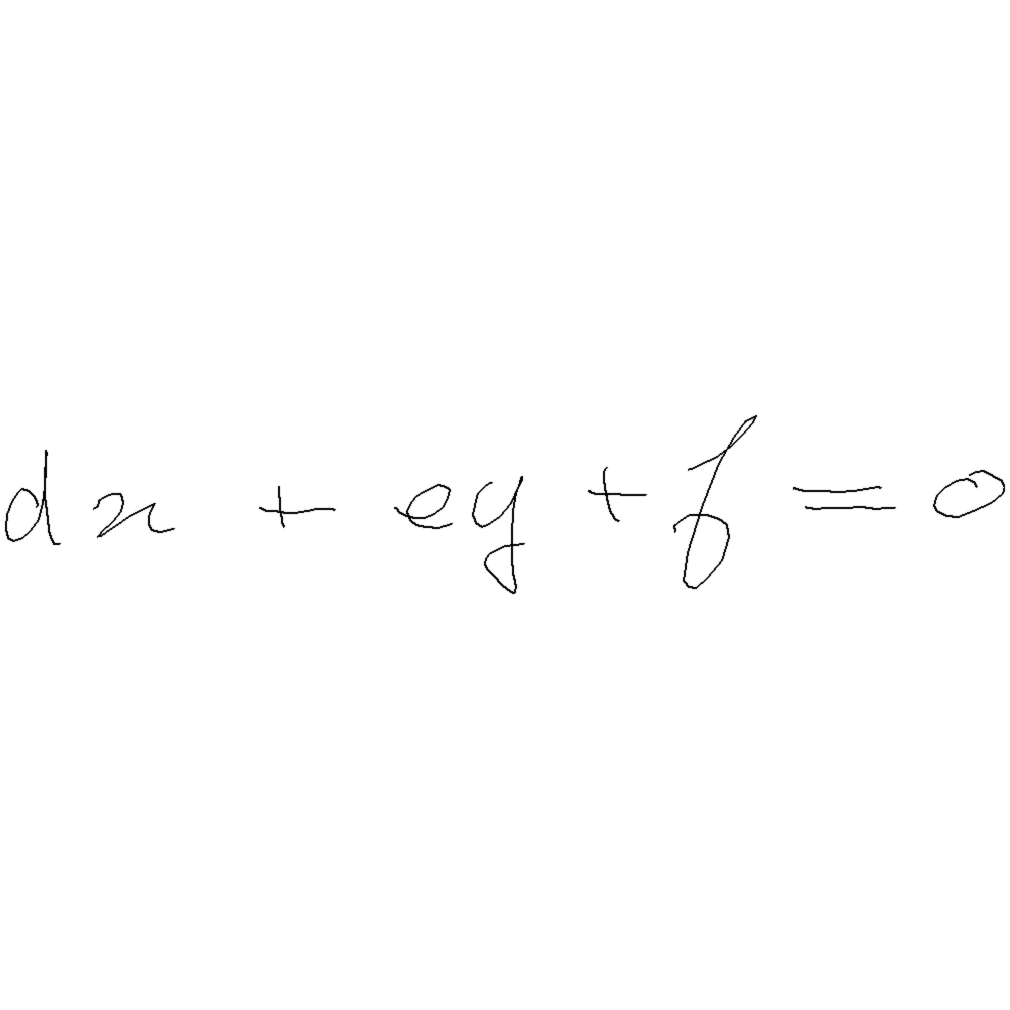 dx + ey + f = 0